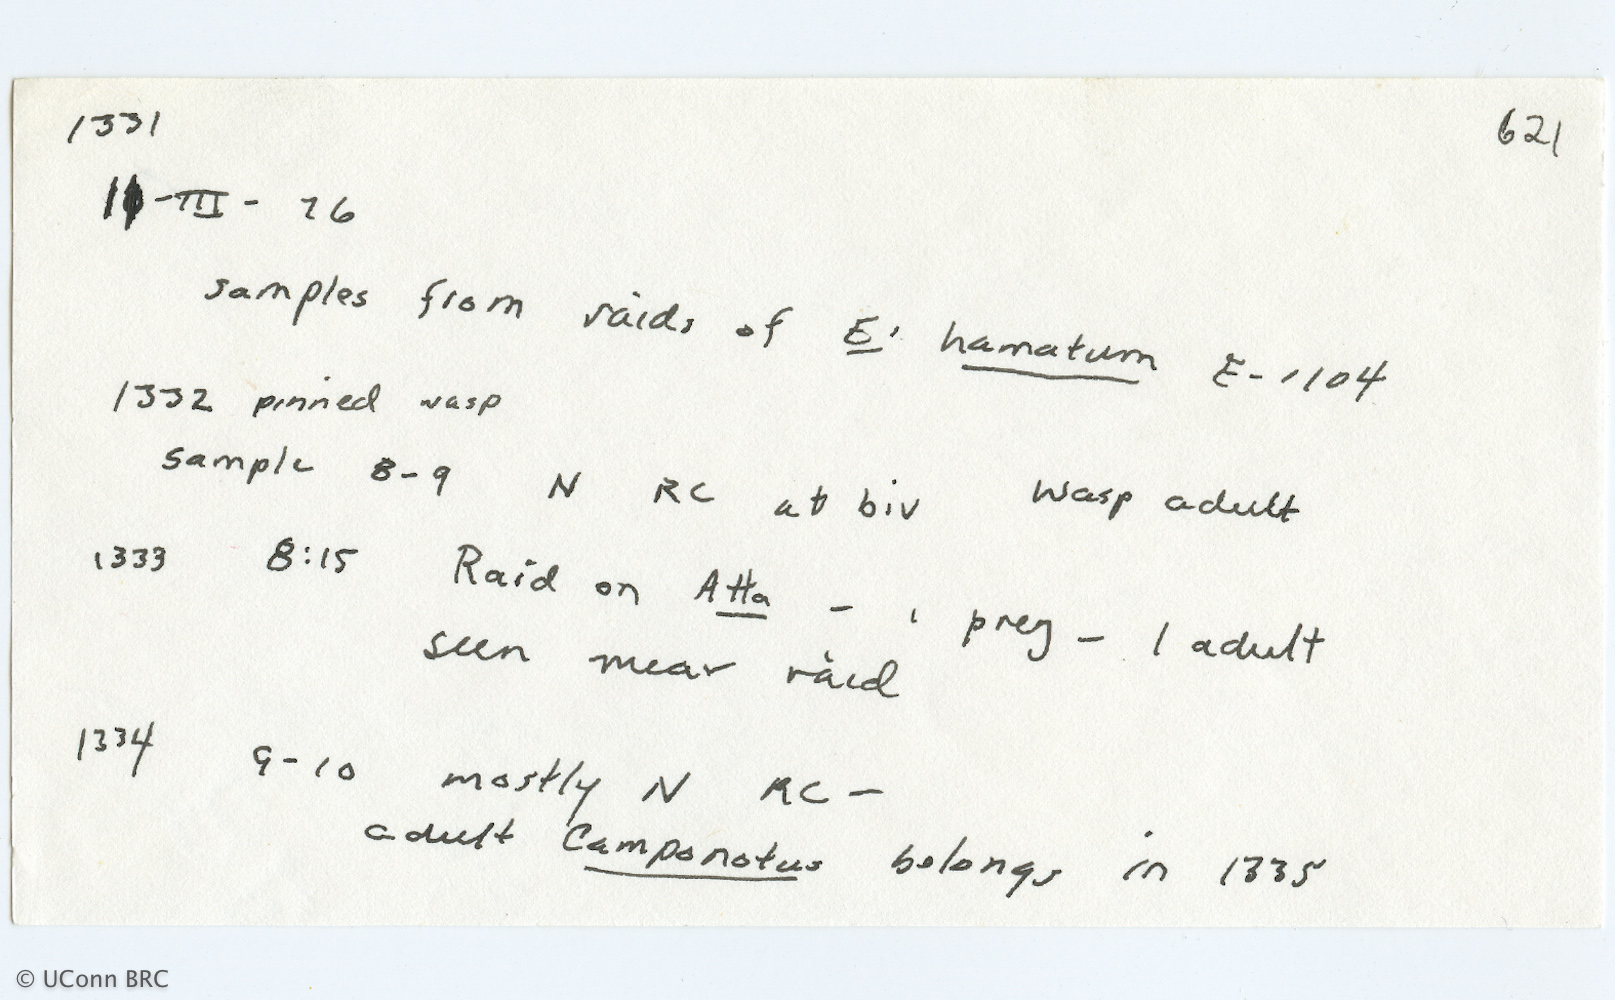 1331 621
11-III-76
samples from raids of E. hamatum E-1104
1332 pinned wasp
sample 8-9 N RC at biv wasp adult
1333 8:15 Raid on Atta - 1 preg - 1 adult
seen near raid
1334 9-10 mostly N RC -
adult Camponotus belongs in 1335
© UConn BRC